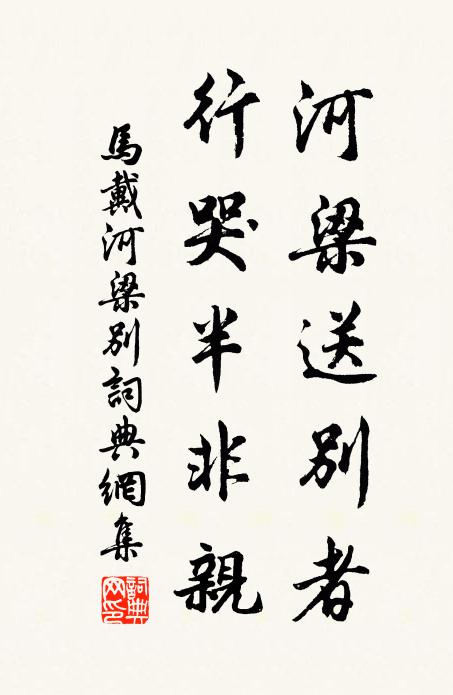 河梁送別者
行哭半非親
馬戴河梁別詞典網集
詞典網印